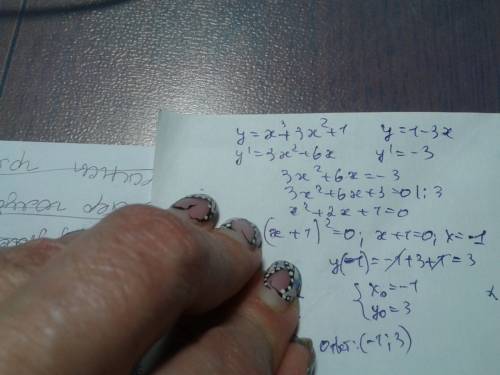 y=x³+3x²+1 y=1-3x
y'=3x²+6x y'=-3
3x²+6x=-3
3x²+6x+3=0 |:3
x²+2x+1=0
(x+1)²=0; x+1=0; x=-1
y(-1)=-1+3+1=3
{ x₀=-1
y₀=3
Ответ: (-1; 3)